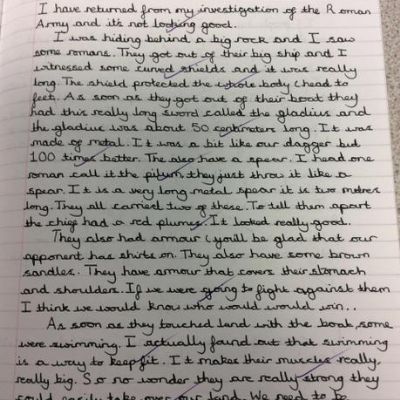 I have returned from my investigation of the Roman
Army and it's not looking good.
I was hiding behind a big rock and I saw
some romans. They got out of their big ship and I
witnessed some curved shields and it was really
long. The shield protected the whole body (head to
feet. As soon as they got out of their boat they
had this really long sword called the gladius and
the gladius was about 50 centimeters long. It was
made of metal. It was a bit like our dagger but
100 times better. The also have a spear. I head one
roman call it the pilum, they just throw it like a
spear. It is a very long metal spear it is two metres
long. They all carried two of these. To tell them apart
the chief had a red plume. It looked really good.
They also had armour (you'll be glad that our
opponent has shirts on. They also have some brown
sandles. They have armour that covers their stomach
and shoulders. If we were going to fight against them
I think we would know who would would win..
As soon as they touched land with the boat, some
were swimming. I actually found out that swimming
is a way to keep fit. It makes their muscles really,
really big. So no wonder they are really strong they
could easily take over our land. We need to be